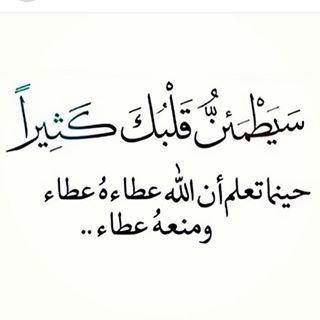 سَيَطْمَئنُّ قَلْبُكَ كَثِيراً
حينما تعلم أن الله عطاءهُ عطاء
ومنعهُ عطاء ..